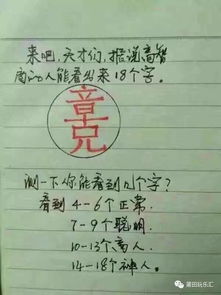 来吧，天才们，据说高智
商的人能看出来18个字。
章
兄
测一下你能看到几个字？
看到4-6个正常.
7-9个聪明.
10-13个高人.
14-18个神人。
莆田玩乐汇